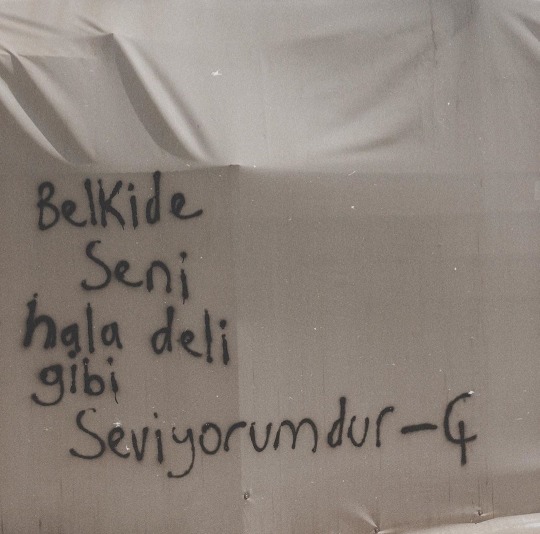 Belkide
Seni
hala deli
gibi
Seviyorumdur - Ç